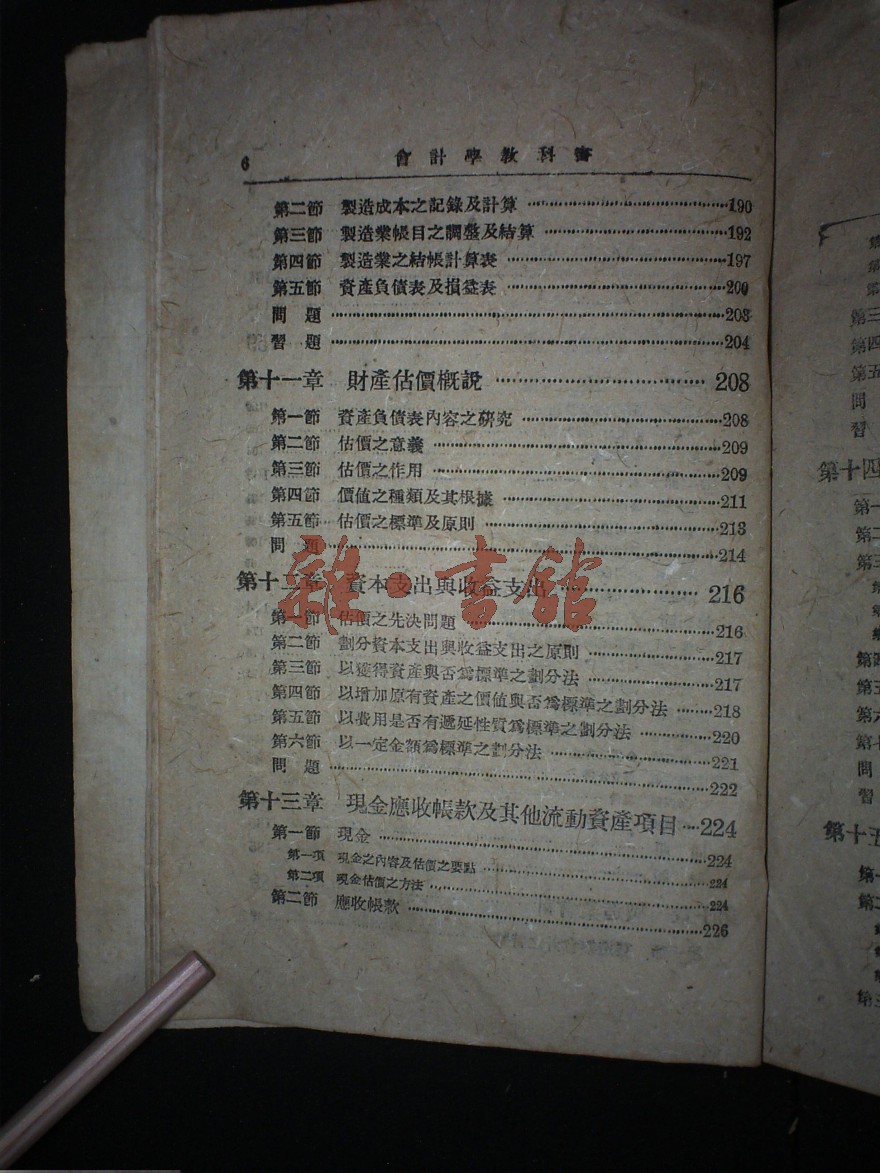 6 會計學教科書
第二節 製造成本之記錄及計算 190
第三節 製造業帳目之調整及結算 192
第四節 製造業之結帳計算表 197
第五節 資產負債表及損益表 200
問題 203
習題 204
第十一章 財產估價概說 208
第一節 資產負債表內容之研究 208
第二節 估價之意義 209
第三節 估價之作用 209
第四節 價值之種類及其根據 211
第五節 估價之標準及原則 213
問題 214
第十二章 資本支出與收益支出 216
第一節 估價之先決問題 216
第二節 劃分資本支出與收益支出之原則 217
第三節 以獲得資產與否爲標準之劃分法 217
第四節 以增加原有資產之價値與否爲標準之劃分法 218
第五節 以費用是否有遞延性質爲標準之劃分法 220
第六節 以一定金額爲標準之劃分法 221
問題 222
第十三章 現金應收帳款及其他流動資產項目 224
第一節 現金 224
第一項 現金之內容及估價之要點 224
第二項 現金估價之方法 224
第二節 應收帳款 226
雜·書館
第三
第四
第五
問
習
第十四
第一
第二
第三
第四
第五
第六
第七
問
習
第十五
第一
第二
第三